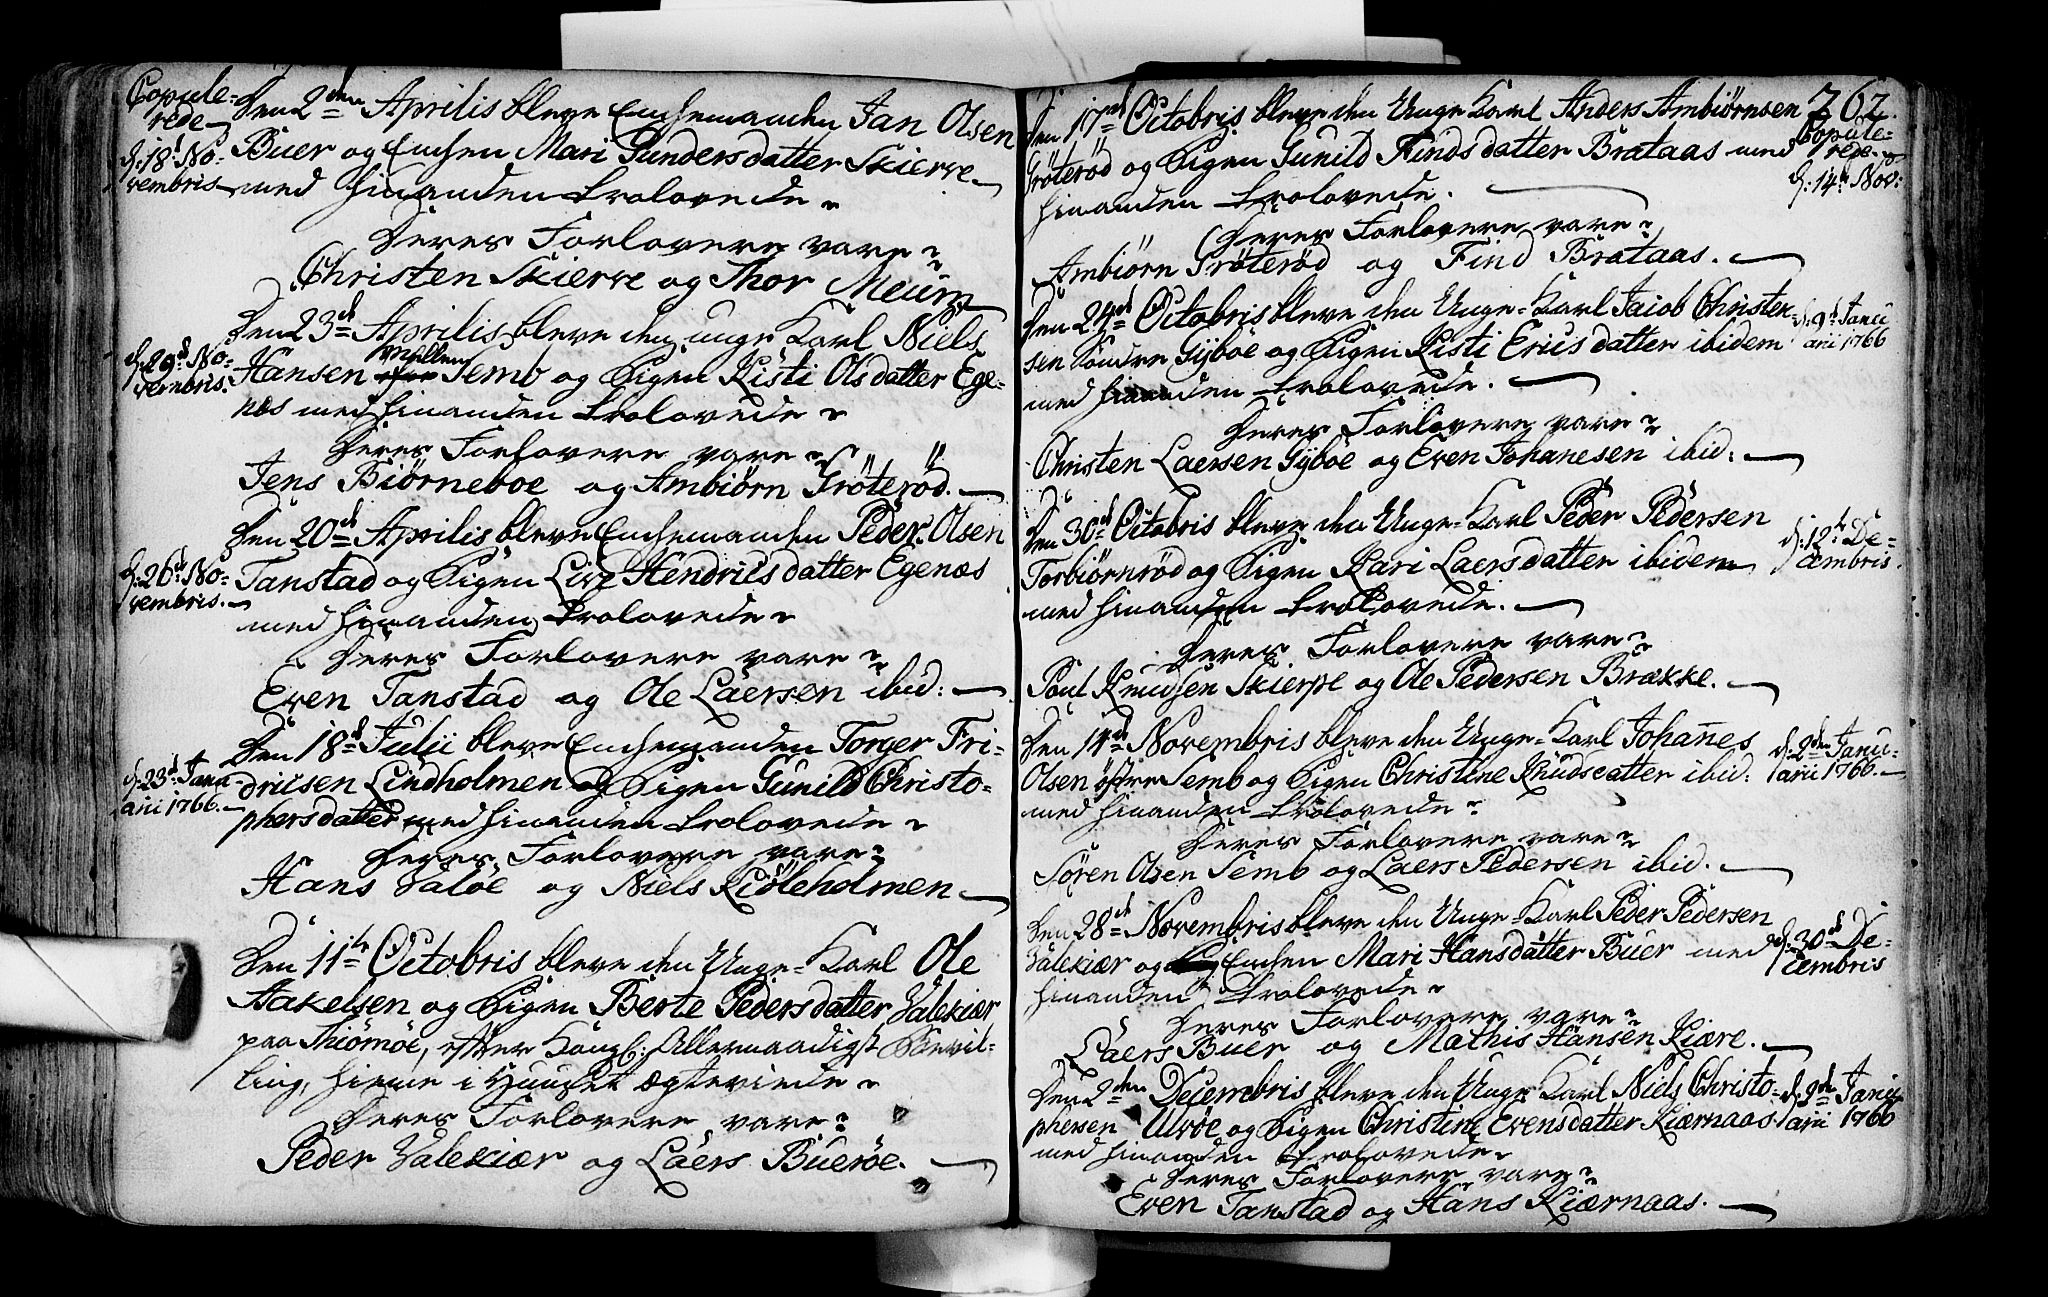 Copule-
rede
d: 18de No-
vembris
Den 2den Aprilis bleve Enchemanden Jan Olsen
Buer og Enchen Mari Gundersdatter Skierve
med hinanden trolovede
Deres Forlovere vare
Christen Skierve og Thor Meum
d: 29de No-
vembris.
Den 23de Aprilis bleve den unge Karl Niels
Hansen mellem Semb og Pigen Kisti Olsdatter Ege-
næs med hinanden trolovede
Deres Forlovere vare
Jens Biørneboe og Ambiørn Grøterød.
d: 26de No-
vembris.
Den 20de Aprilis bleve Enchemanden Peder Olsen
Tanstad og Pigen Live Hendricsdatter Egenæs
med hinanden trolovede
Deres Forlovere vare
Even Tanstad og Ole Laersen ibid:
d: 23de Janu-
arii 1766.
Den 18de Julii bleve Enchemanden Torger Fri-
dricsen Lindholmen og Pigen Gunild Christo-
phersdatter med hinanden trolovede
Deres Forlovere vare
Hans Valøe og Niels Kiøleholmen
Den 11te Octobris bleve den Unge-Karl Ole
Aakelsen og Pigen Berte Pedersdatter Valekiær
paa Thiømøe, efter Kongl: Allernaadigst Bevil-
ling, hieme i Huuset ægteviede
Deres Forlovere vare
Peder Valekiær og Laers Buerøe.
262.
Den 17de Octobris bleve den Unge Karl Anders Ambiørnsen
Grøterød og Pigen Gunild Findsdatter Brataas med
hinanden trolovede.
Copule-
rede
d: 14de Nov:
Deres Forlovere vare
Ambiørn Grøterød og Find Brataas.
Den 24de Octobris bleve den Unge-Karl Jacob Christen-
sen Søndre Gyboe og Pigen Kisti Ericsdatter ibidem
med hinanden trolovede.
d: 9de Janu
arii 1766
Deres Forlovere vare
Christen Laersen Gyboe og Even Johanesen ibid:
Den 30de Octobris bleve den Unge-Karl Peder Pedersen
Torbiørnrød og Pigen Kari Laersdatter ibidem
med hinanden trolovede.
d: 12te De-
cembris.
Deres Forlovere vare
Poul Knudsen Skierpe og Ole Pedersen Brække.
Den 14de Novembris bleve den Unge-Karl Johanes
Olsen østre Semb og Pigen Christine Knudsdatter ibid:
med hinanden trolovede
d: 2den Janu-
arii 1766.
Deres Forlovere vare
Søren Olsen Semb og Laers Pedersen ibid.
Den 28de Novembris bleve den Unge-Karl Peder Pedersen
Valekiær og Enchen Mari Hansdatter Buer med
hinanden trolovede
d: 30de De-
cembris
Deres Forlovere vare
Laers Buer og Mathis Hansen Kiære.
Den 2den Decembris bleve den Unge Karl Niels Christo-
phersen Ulvøe og Pigen Christine Evensdatter Kiærnaas
med hinanden trolovede
d: 9de Janu
arii 1766
Deres Forlovere vare
Even Tanstad og Hans Kiærnaas.